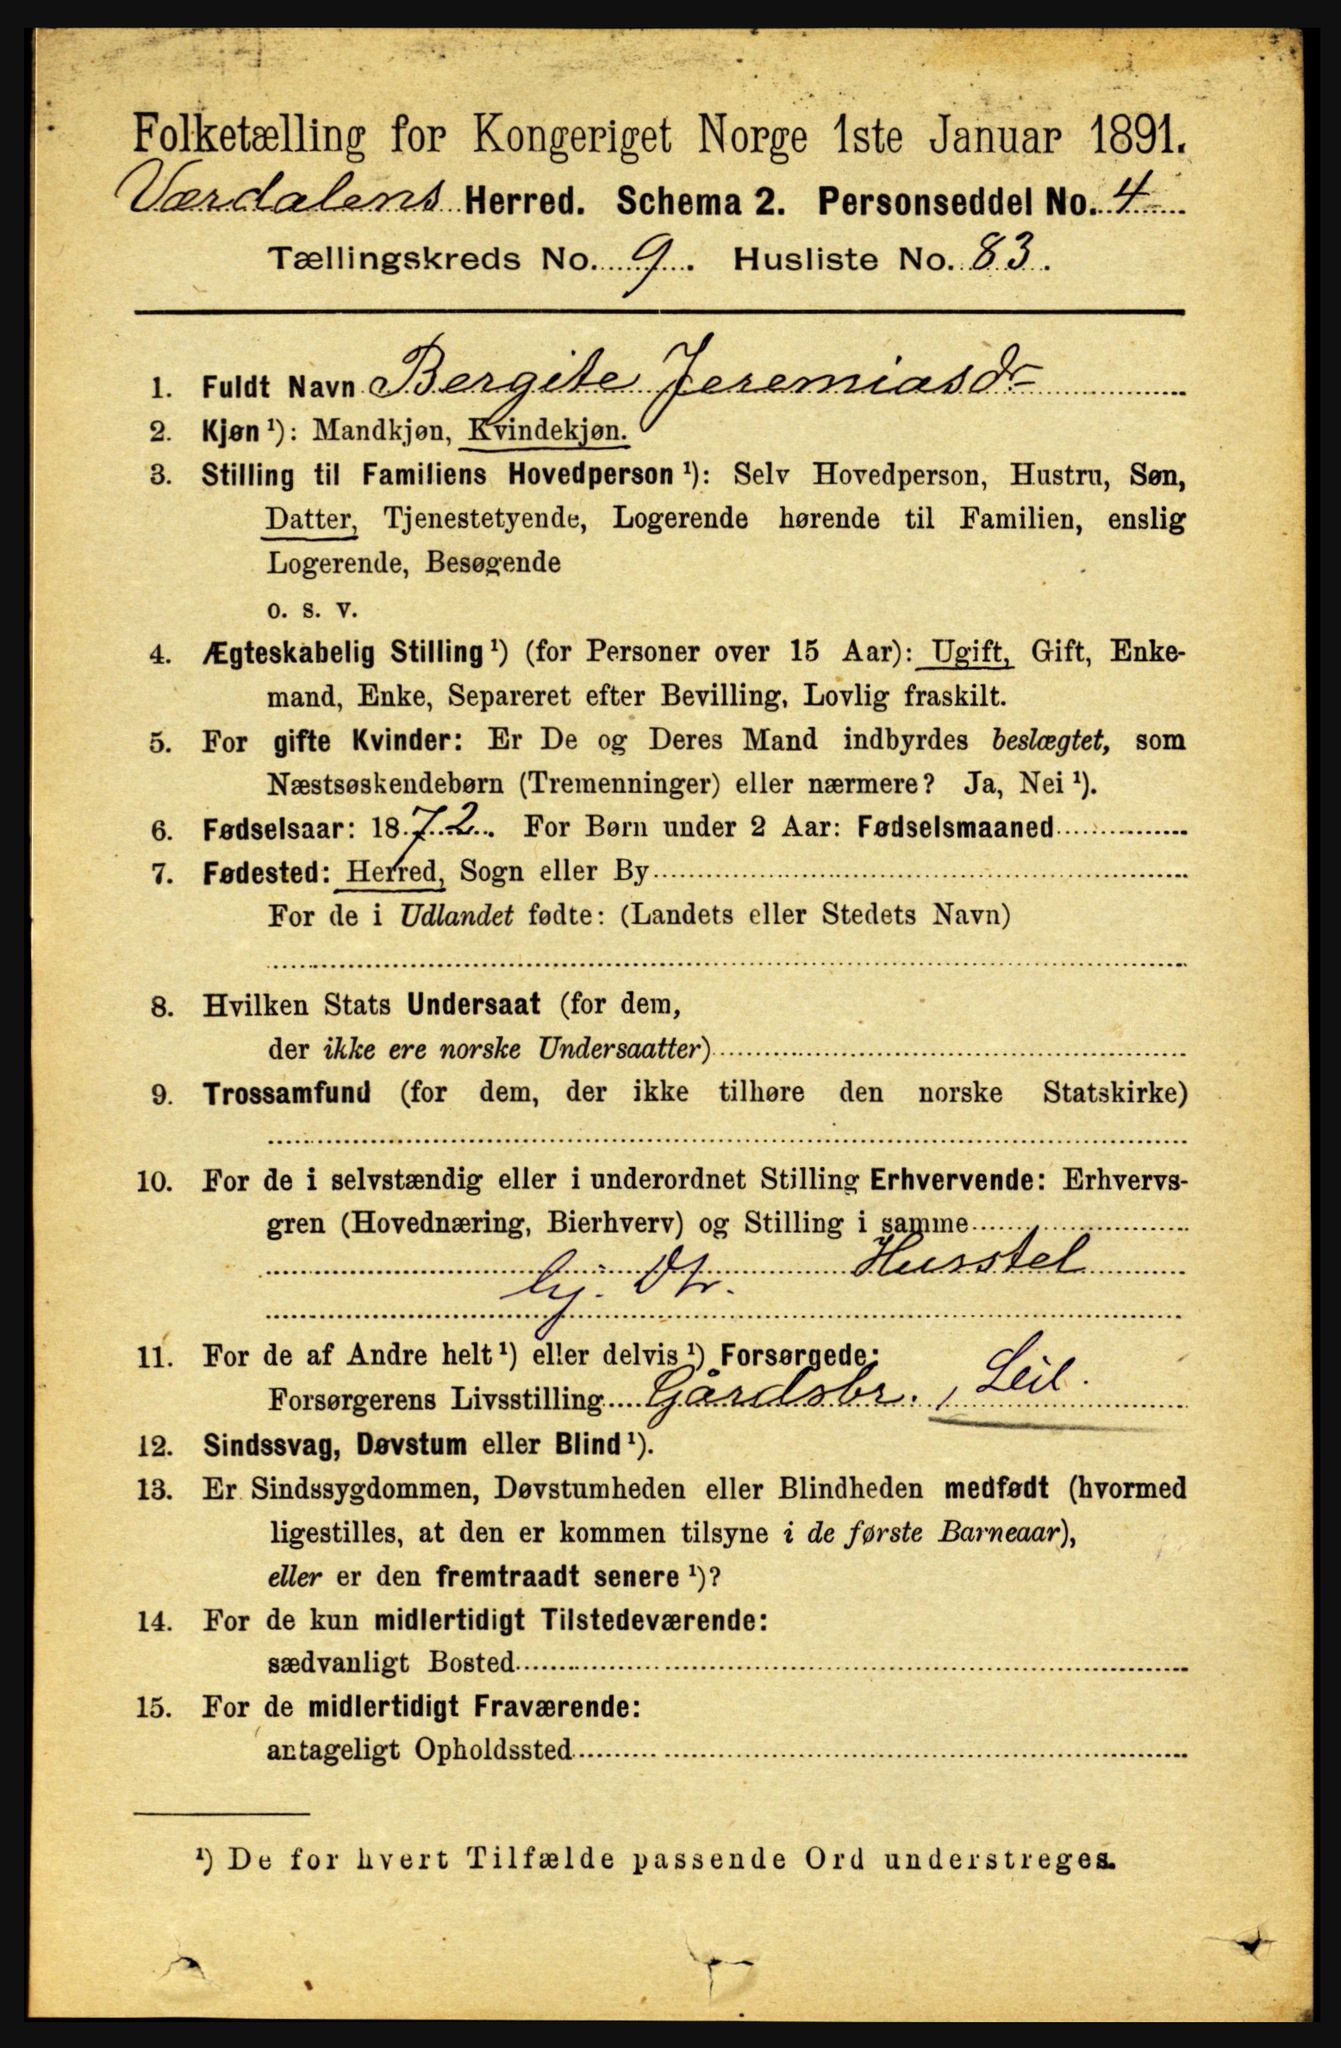 Folketælling for Kongeriget Norge 1ste Januar 1891.
Værdalens Herred. Schema 2. Personseddel No. 4
Tællingskreds No. 9. Husliste No. 83.
1. Fuldt Navn Bergite Jeremiasdr
2. Kjøn¹): Mandkjøn, Kvindekjøn.
3. Stilling til Familiens Hovedperson¹): Selv Hovedperson, Hustru, Søn,
Datter, Tjenestetyende, Logerende hørende til Familien, enslig
Logerende, Besøgende
o. s. v.
4. Ægteskabelig Stilling¹) (for Personer over 15 Aar): Ugift, Gift, Enke-
mand, Enke, Separeret efter Bevilling, Lovlig fraskilt.
5. For gifte Kvinder: Er De og Deres Mand indbyrdes beslægtet, som
Næstsøskendebørn (Tremenninger) eller nærmere? Ja, Nei¹).
6. Fødselsaar: 1872. For Børn under 2 Aar: Fødselsmaaned
7. Fødested: Herred, Sogn eller By
For de i Udlandet fødte: (Landets eller Stedets Navn)
8. Hvilken Stats Undersaat (for dem,
der ikke ere norske Undersaatter)
9. Trossamfund (for dem, der ikke tilhøre den norske Statskirke)
10. For de i selvstændig eller i underordnet Stilling Erhvervende: Erhvervs-
gren (Hovednæring, Bierhverv) og Stilling i samme
Husstel
hj. Dtr.
11. For de af Andre helt¹) eller delvis¹) Forsørgede:
Forsørgerens Livsstilling Gårdsbr., Leil.
12. Sindssvag, Døvstum eller Blind¹).
13. Er Sindssygdommen, Døvstumheden eller Blindheden medfødt (hvormed
ligestilles, at den er kommen tilsyne i de første Barneaar),
eller er den fremtraadt senere¹)?
14. For de kun midlertidigt Tilstedeværende:
sædvanligt Bosted
15. For de midlertidigt Fraværende:
antageligt Opholdssted
¹) De for hvert Tilfælde passende Ord understreges.